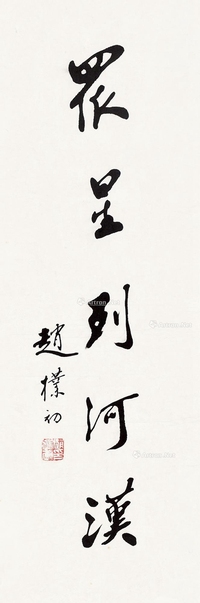 眾星列河漢
趙樸初